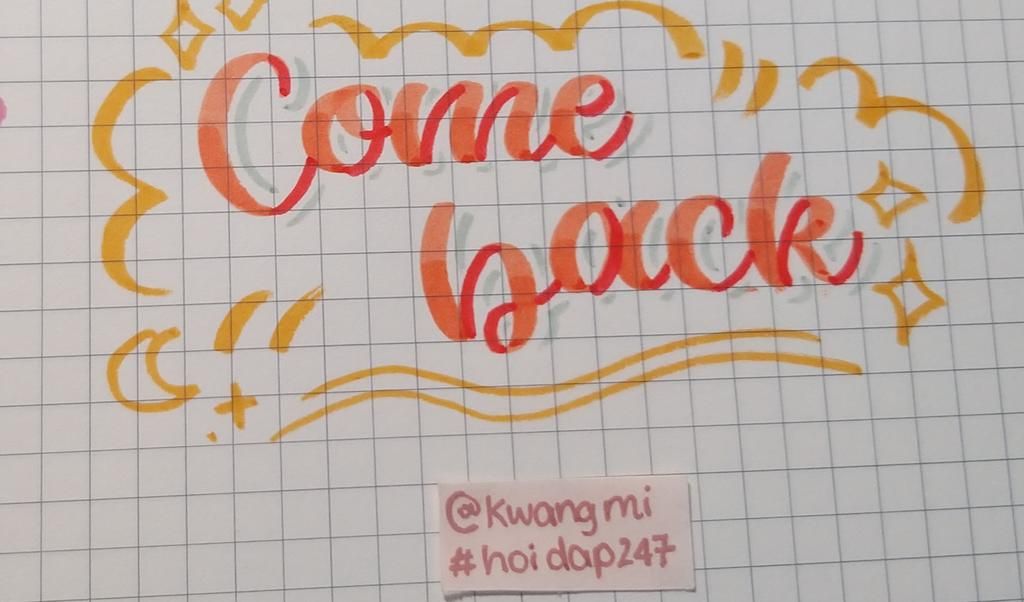 Come
back
@kwangmi
#hoidap247